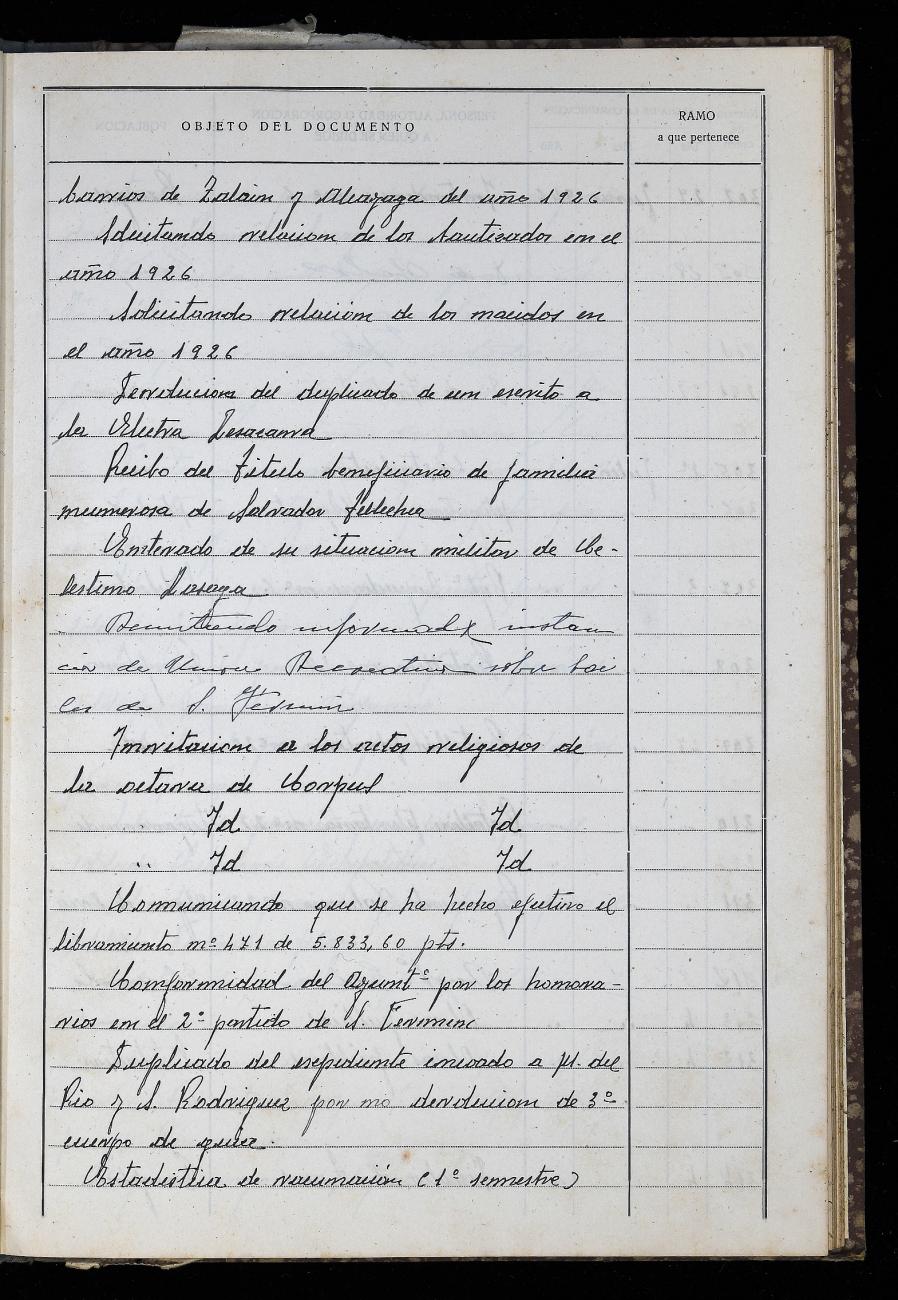 OBJETO DEL DOCUMENTO
RAMO
a que pertenece
barrios de Zalain y Alcayaga del año 1926
Solicitando relacion de los bautizados en el
año 1926
Solicitando relación de los nacidos en
el año 1926
Devolucion del duplicado de un escrito a
la Electra Lesacarra
Recibo del Titulo beneficiario de familia
numerosa de Salvador Tellechea
Enterado de su situacion militar de Ce-
lestino Lasaga
Remitiendo informada instan
cia de Union Recreativa sobre bai
les de S. Fermin
Invitacion a los actos religiosos de
la octava de Corpus
Id Id
" Id Id
Comunicando que se ha hecho efectivo el
libramiento nº 471 de 5.833,60 pts.
Conformidad del Ayuntº por los honora-
rios en el 2º partido de S. Fermin
Duplicado del expediente incoado a M. del
Rio y S. Rodriguez por no devolucion de 3º
cuerpo de guia.
Estadistica de vacunación (1º semestre)